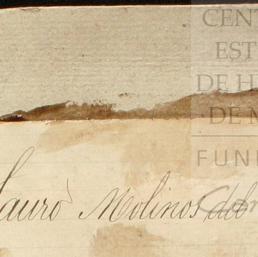 CENT
EST
DE H
DE M
FUN
Lauro Molinos del